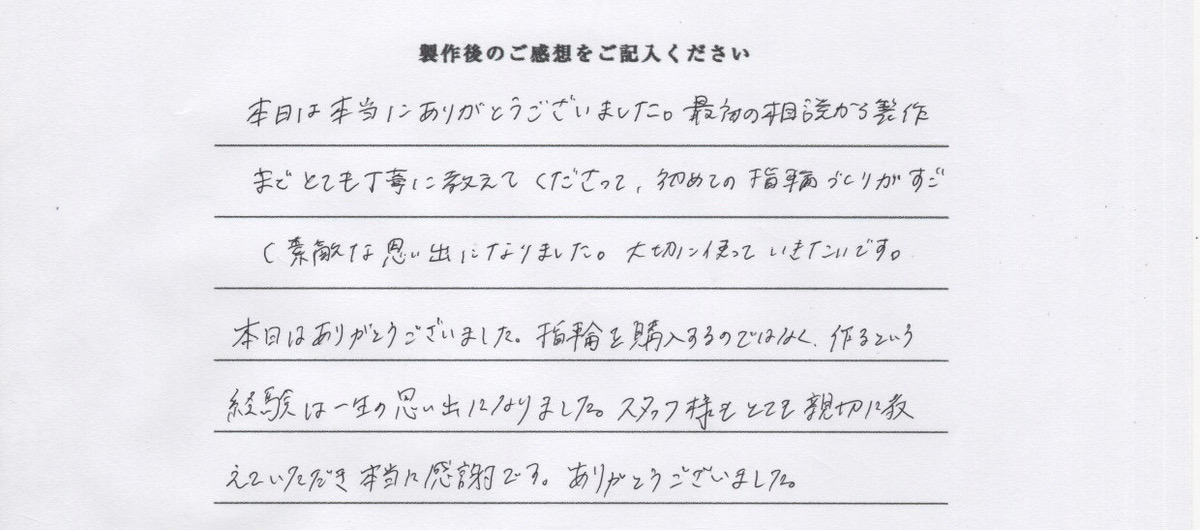 製作後のご感想をご記入ください
本日は本当にありがとうございました。最初の相談から製作
までとても丁寧に教えてくださって、初めての指輪づくりがすご
く素敵な思い出になりました。大切に使っていきたいです。
本日はありがとうございました。指輪を購入するのではなく、作るという
経験は一生の思い出になりました。スタッフ様もとても親切に教
えていただき本当に感謝です。ありがとうございました。